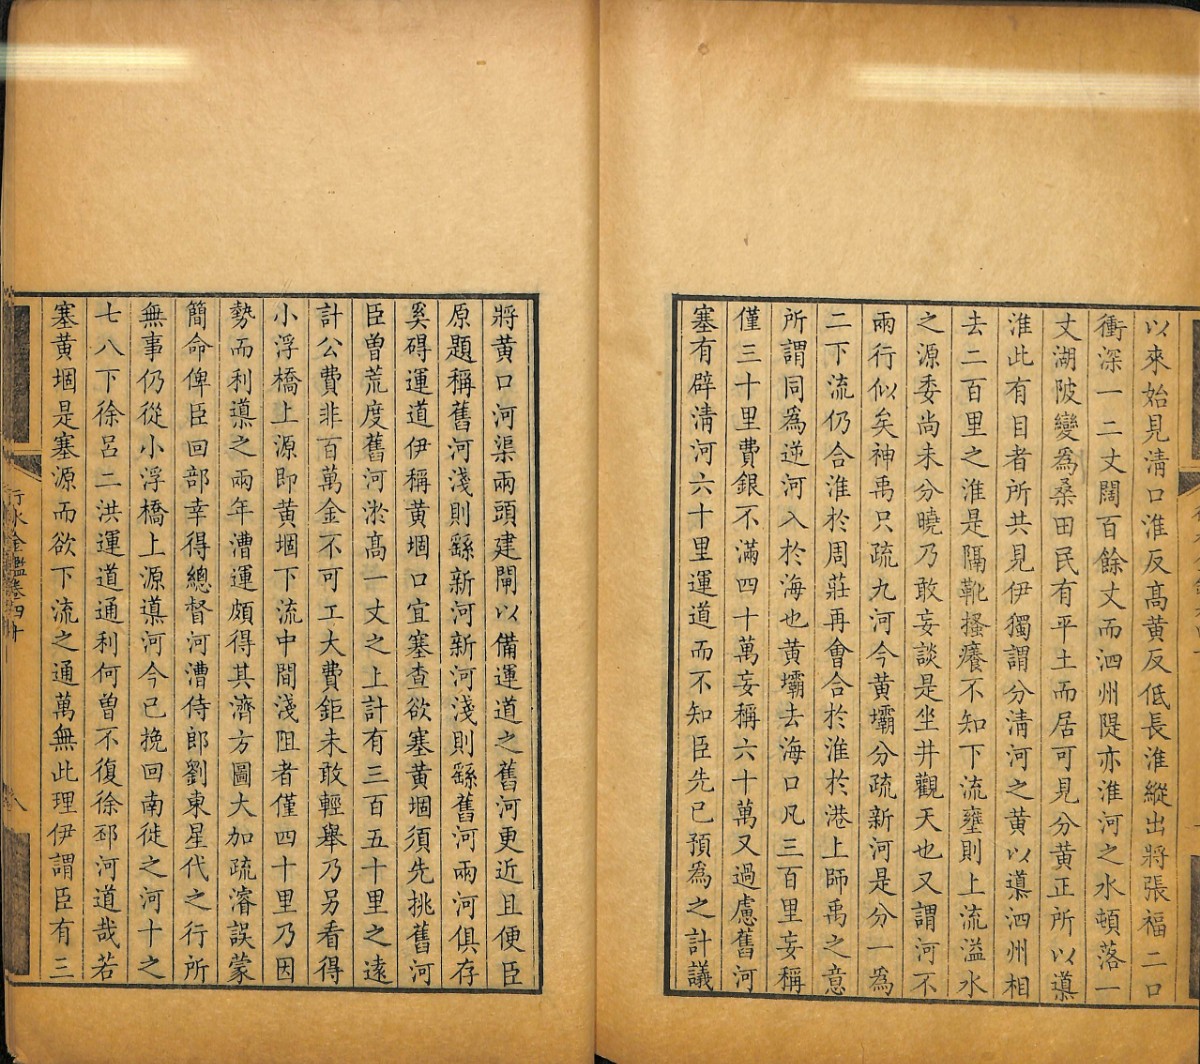 以來始見清口淮反髙黃反低長淮縱出將張福二口
衝深一二丈闊百餘丈而泗州隄亦淮河之水頓落一
丈湖陂變爲桑田民有平土而居可見分黃正所以導
淮此有目者所共見伊獨謂分清河之黃以導泗州相
去二百里之淮是隔靴搔癢不知下流壅則上流溢水
之源委尚未分曉乃敢妄談是坐井觀天也又謂河不
兩行似矣神禹只疏九河今黃壩分疏新河是分一爲
二下流仍合淮於周莊再會合於淮於港上師禹之意
所謂同爲逆河入於海也黃壩去海口凡三百里妄稱
僅三十里費銀不滿四十萬妄稱六十萬又過慮舊河
塞有辟清河六十里運道而不知臣先已預爲之計議
將黃口河渠兩頭建閘以備運道之舊河更近且便臣
原題稱舊河淺則繇新河新河淺則繇舊河兩河俱存
奚碍運道伊稱黃堌口宜塞查欲塞黃堌須先挑舊河
臣曾荒度舊河淤髙一丈之上計有三百五十里之遠
計公費非百萬金不可工大費鉅未敢輕舉乃另看得
小浮橋上源即黃堌下流中間淺阻者僅四十里乃因
勢而利導之兩年漕運頗得其濟方圖大加疏濬誤蒙
簡命俾臣回部幸得總督河漕侍郎劉東星代之行所
無事仍從小浮橋上源導河今已挽回南徙之河十之
七八下徐呂二洪運道通利何曾不復徐邳河道哉若
塞黃堌是塞源而欲下流之通萬無此理伊謂臣有三
行水金鑑卷四十
八